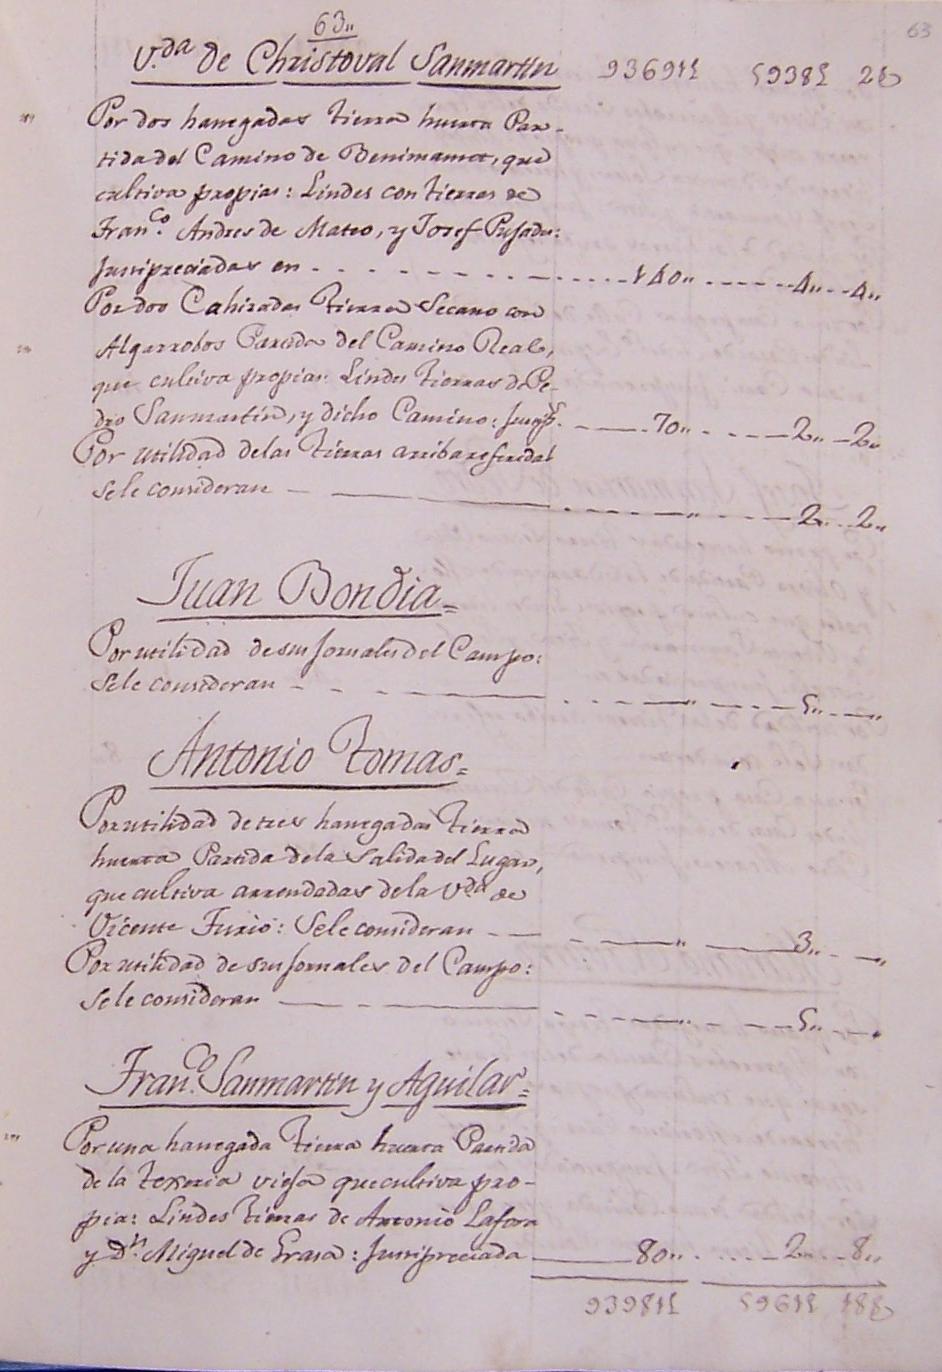 63
63„
V.da de Christoval Sanmartin
Por dos hanegadas tierra huerta Par-
tida del Camino de Benimamet, que
cultiva propias: Lindes con tierras de
Fran.co Andres de Mateo, y Josef Pujadas:
Justipreciadas en - - - - - 140„ - - - - - 4„ - - 4„
Por dos Cahizadas tierra Secano con
Algarrobos Partida del Camino Real,
que cultiva propias: Lindes tierras de Pe-
dro Sanmartin, y dicho Camino: - - 70„ - - - - 2„ - 2„
Por utilidad de las tierras arriba referidas
Se le consideran - - - - - „ - - - - 2„ - - 2„
Juan Bondia=
Por utilidad de sus Jornales del Campo:
Se le consideran - - - - - „ - - - - 5„ - - „
Antonio Tomas=
Por utilidad de tres hanegadas tierra
huerta Partida de la Salida del Lugar,
que cultiva arrendadas de la V.da de
Vicente Furió: Se le consideran - - - - „ - - 3„ - - „
Por utilidad de sus Jornales del Campo:
Se le consideran - - - - - „ - - - - 5„ - - „
Fran.co Sanmartin y Aguilar=
Por una hanegada tierra huerta Partida
de la texeria vieja que cultiva pro-
pia: Lindes tierras de Antonio Lafora
y D.n Miguel de Erasa: Justipreciada - - 80„ - - - - 2„ - - 8„